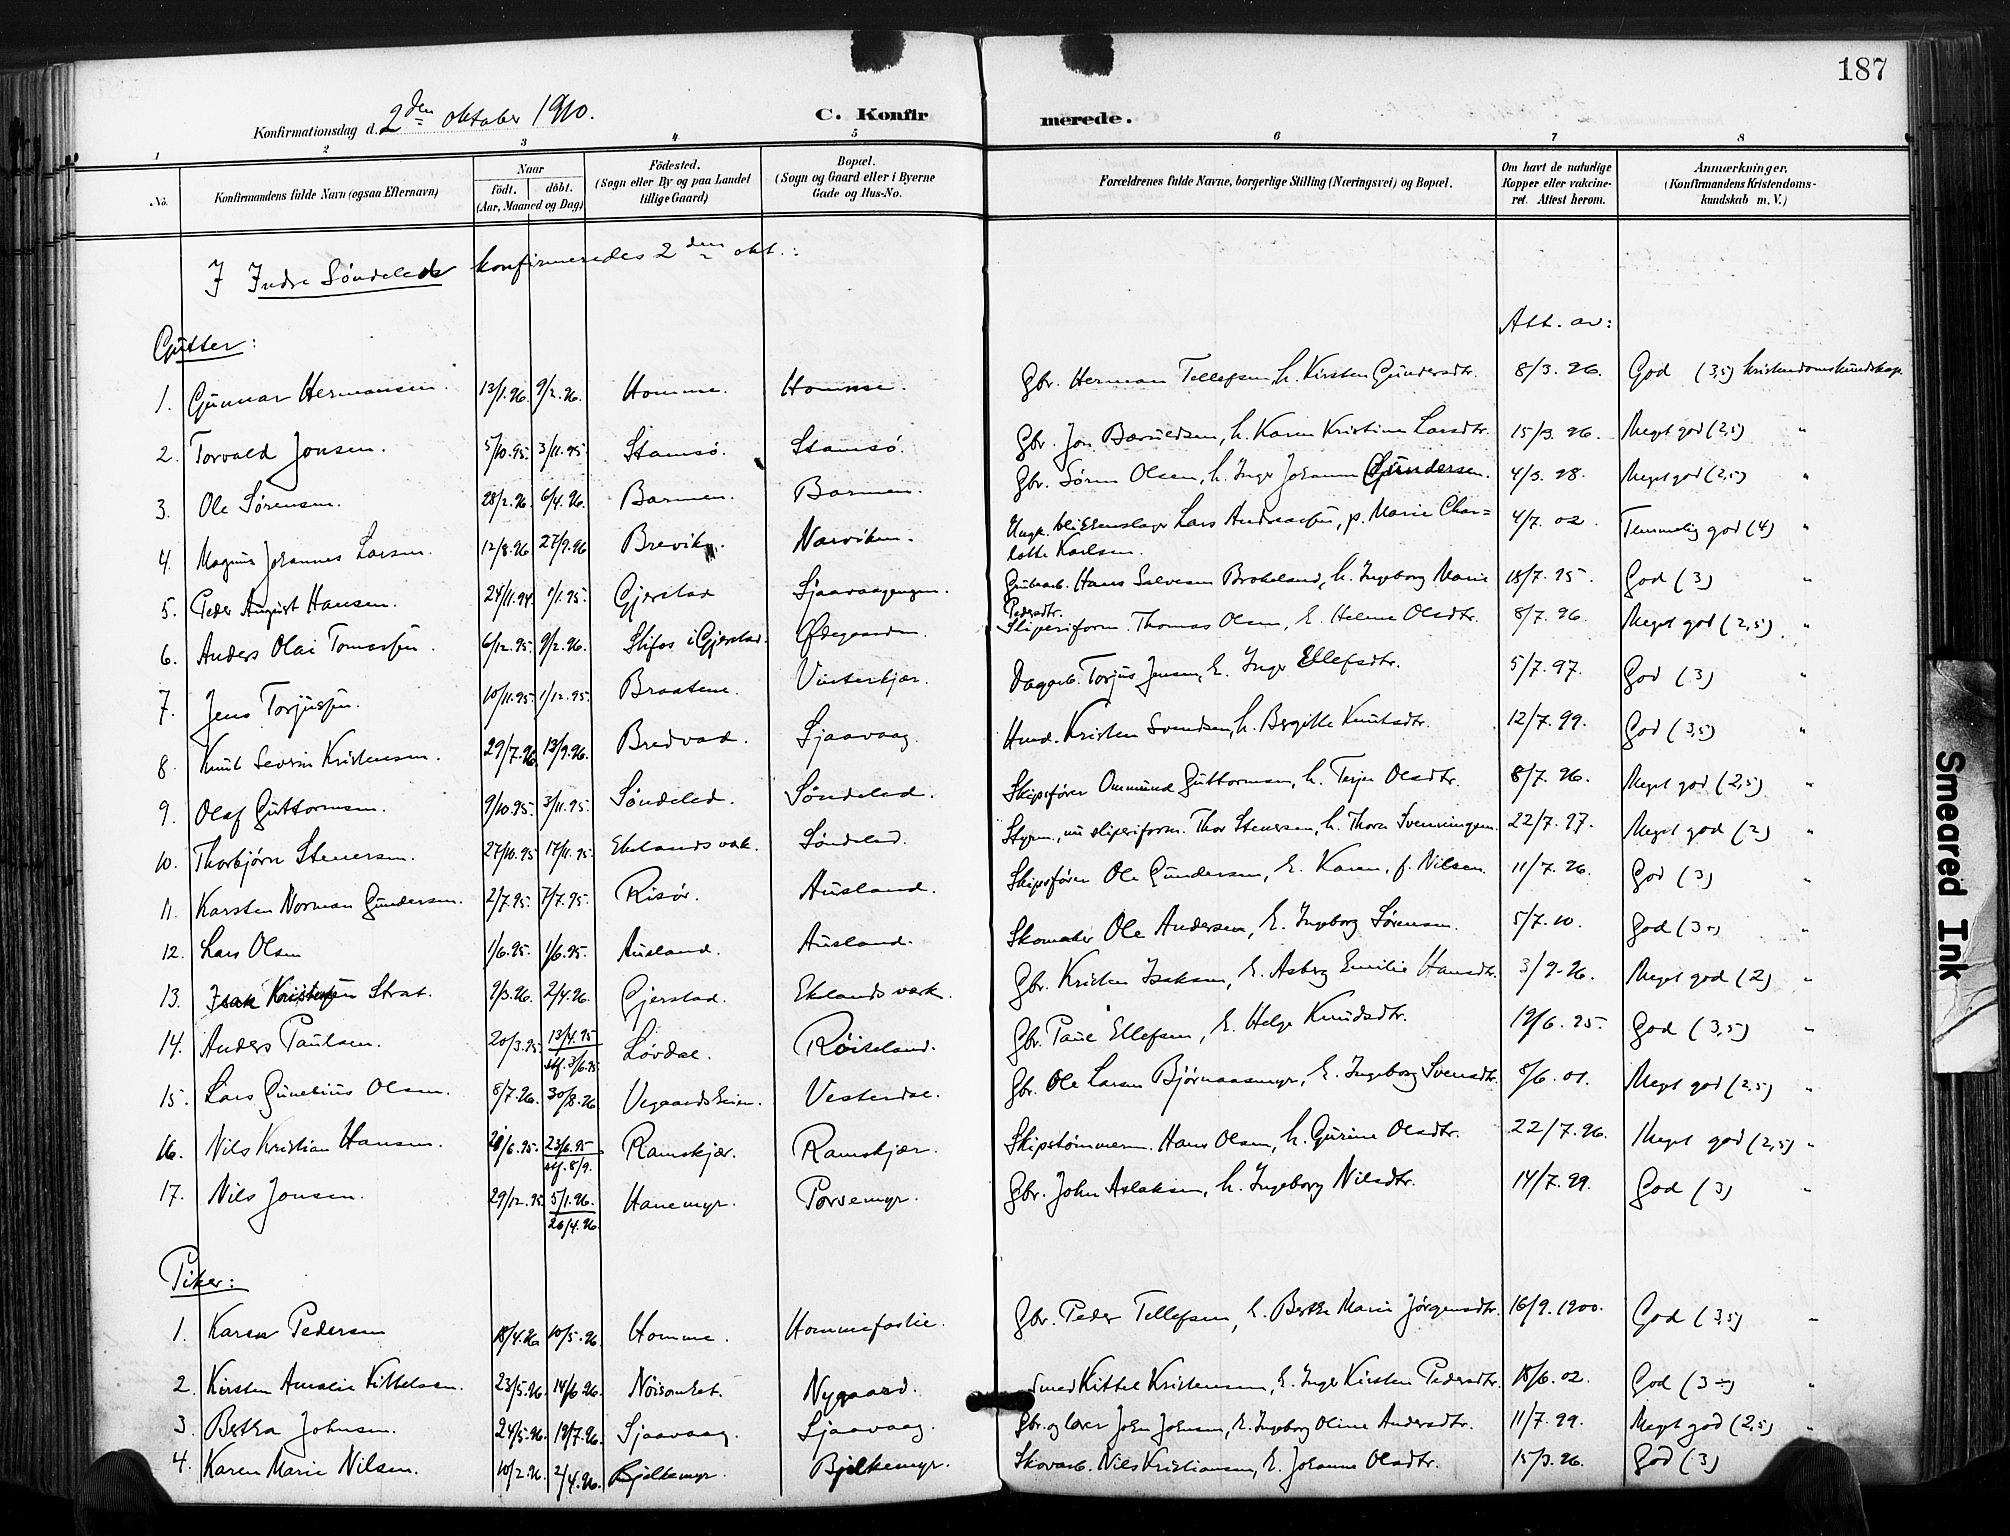 187
Konfirmationsdag d. 2den oktober 1910.
C. Konfirmerede.
1 2 3 4 5 6 7 8
No.
Konfirmandens fulde Navn (ogsaa Efternavn)
Naar
födt. döbt.
(Aar, Maaned og Dag)
Födested.
(Sogn eller By og paa Landet
tillige Gaard)
Bopæl.
(Sogn og Gaard eller i Byerne
Gade og Hus-No.
Forældrenes fulde Navne, borgerlige Stilling (Næringsvei) og Bopæl.
Om havt de naturlige
Kopper eller vakcine-
ret. Attest herom.
Anmærkninger.
(Konfirmandens Kristendoms-
kundskab m. V.)
I Indre Søndeled konfirmeredes 2den okt.:
Att. av:
Gutter:
1. Gunnar Hermansen. 13/1.96. 9/2.96. Homme. Homme. Gbr. Herman Tellefsen h. Kirsten Gundersdtr. 8/3. 96. God (3,5) kristendomskundskap.
2. Torvald Jonsen. 5/10.95. 3/11.95. Stamsö. Stamsö. Gbr. Jon Baruldsen, h. Karen Kristine Larsdtr. 15/3. 96. Meget god (2,5) "
3. Ole Sørensen. 28/2.96. 6/4.96. Barmen. Barmen. Gbr. Sören Olsen, h. Inger Johanne Gundersen. 4/3. 98. Meget god (2,5) "
4. Magnus Johannes Larsen. 12/8.96 27/9.96 Brevik. Narviken. Ungk. blikkenslager Lars Andreassen, p. Marie Char=
lotte Karlsen. 4/7. 02. Temmelig god (4) "
5. Peder August Hansen. 24/11.94. 1/1.95. Gjerstad Sjaavaagengen. Grubearb. Hans Salvesen Brokeland, h. Ingeborg Marie
Pedersdtr. 18/7. 95. God (3) "
6. Anders Olai Tomassen. 6/12.95. 9/2.96. Slifos i Gjerstad. Ødegaarden. Sliperiform. Thomas Olsen, E. Helene Olsdtr. 8/7. 96. Meget god (2,5) "
7. Jens Torjussen. 10/11.95. 1/12.95. Braatene. Vinterkjær. Daggarb. Torjus Jensen, E. Inger Ellefsdtr. 5/7. 97. God (3) "
8. Knut Severin Kristensen. 29/7.96 13/9.96. Bredvad. Sjaavaag. Hmd. Kristen Svendsen, h. Bergitte Knutsdtr. 12/7. 99. God (3,5) "
9. Olaf Guttormsen. 9/10.95. 3/11.95. Søndeled. Søndeled. Skipsfører Ommund Guttormsen, h. Terje Olsdtr. 8/7. 96. Meget god (2,5) "
10. Thorbjörn Stenersen. 27/10.95. 17/11.95. Eklandsverk. Søndeled. Styrm., nu sliperiform. Thor Stenersen, h. Thora Svenningsen. 22/7. 97. Meget god (2) "
11. Karsten Norman Gundersen. 2/7.95. 7/7.95. Risör. Ausland. Skipsfører Ole Gundersen, E. Karen, f. Nilsen. 11/7. 96. God (3) "
12. Lars Olsen 1/6.95. 1/6.95. Ausland. Ausland. Skomaker Ole Andersen, E. Ingeborg Sørensen. 5/7. 10. God (3-) "
13. Isak Kristensen Strat. 9/3.96. 2/4.96. Gjerstad. Eklandsverk. Gbr. Kristen Isaksen, E. Asberg Emilie Hansdtr. 3/9. 96. Meget god (2) "
14. Anders Paulsen. 20/3.95. 13/4.95 stf. 3/6.95. Lövdal. Röiseland. Gbr. Paul Ellefsen, E. Helge Knudsdtr. 19/6. 95. God (3,5) "
15. Lars Gunelius Olsen. 8/7.96. 30/8.96 Vegaardsheien. Vesterdal. Gbr. Ole Larsen Björnaasmyr, E. Ingeborg Svensdtr. 8/6. 01. Meget god (2,5) "
16. Nils Kristian Hansen. /6.95. 23/6.95 stf. 8/9. Ramskjær. Ramskjær. Skipstømmerm. Hans Olsen, h. Gurine Olsdtr. 22/7. 96. Meget god (2,5) "
17. Nils Jonsen. 29/12.95. 5/1.96. 26/4.96. Hanemyr. Porsemyr. Gbr. John Aslaksen, h. Ingeborg Nilsdtr. 14/7. 99. God (3) "
Piker:
1. Karen Pedersen 18/4.96 10/5.96 Homme. Hommefoslie. Gbr. Peder Tellefsen, h. Berthe Marie Jörgensdtr. 16/9. 1900. God (3,5) "
2. Kirsten Amalie Kittelsen. 23/5.96. 14/6 96. Nöisomhet. Nygaard. Smed Kittel Kristensen, E. Inger Kirsten Pedersdtr. 18/6. 02. God (3÷) "
3. Betha Johnsen. 24/5.96. 19/7.96. Sjaavaag. Sjaavaag. Gbr. og lærer John Johnsen, E. Ingeborg Oline Andersdtr. 11/7. 99. Meget god (2,5) "
4. Karen Marie Nilsen. 10/2.96. 2/4.96. Bjelkemyr. Bjelkemyr. Skovarb. Nils Kristiansen, E. Johanne Olsdtr. 15/3. 96. God (3)
Smeared Ink